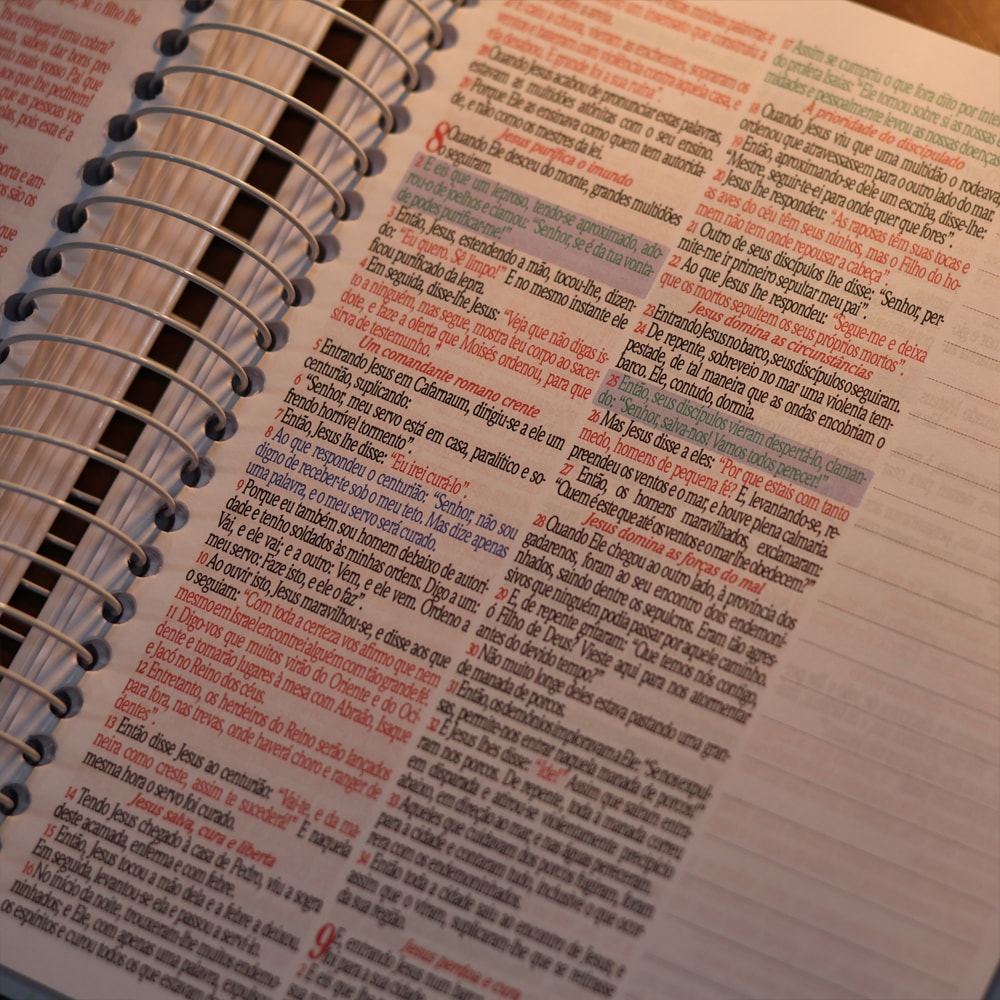 se o filho lhe
entregará uma cobra?
sabeis dar bons pre-
mais vosso Pai que
aos que lhe pedirem!
que as pessoas vos
elas, pois esta é a
porta e am-
os são os
que
e a desabou. E grande foi a sua ruína”.
28 Quando Jesus acabou de pronunciar estas palavras,
estavam as multidões atônitas com o seu ensino.
29 Porque Ele as ensinava como quem tem autorida-
de, e não como os mestres da lei.
Jesus purifica o imundo
8 Quando Ele desceu do monte, grandes multidões
o seguiram.
2 E eis que um leproso, tendo-se aproximado, ado-
rou-o de joelhos e clamou: “Senhor, se é da tua vonta-
de, podes purificar-me!”
3 Então, Jesus, estendendo a mão, tocou-lhe, dizen-
do: “Eu quero. Sê limpo!” E no mesmo instante ele
ficou purificado da lepra.
4 Em seguida, disse-lhe Jesus: “Veja que não digas is-
to a ninguém, mas segue, mostra teu corpo ao sacer-
dote, e faze a oferta que Moisés ordenou, para que
sirva de testemunho.
Um comandante romano crente
5 Entrando Jesus em Cafarnaum, dirigiu-se a ele um
centurião, suplicando:
6 “Senhor, meu servo está em casa, paralítico e so-
frendo horrível tormento”.
7 Então, Jesus lhe disse: “Eu irei curá-lo”.
8 Ao que respondeu o centurião: “Senhor, não sou
digno de receber-te sob o meu teto. Mas dize apenas
uma palavra, e o meu servo será curado.
9 Porque eu também sou homem debaixo de autori-
dade e tenho soldados às minhas ordens. Digo a um:
Vai, e ele vai; e a outro: Vem, e ele vem. Ordeno a
meu servo: Faze isto, e ele o faz”.
10 Ao ouvir isto, Jesus maravilhou-se, e disse aos que
o seguiam: “Com toda a certeza vos afirmo que nem
mesmo em Israel encontrei alguém com tão grande fé.
11 Digo-vos que muitos virão do Oriente e do Oci-
dente e tomarão lugares à mesa com Abraão, Isaque
e Jacó no Reino dos céus.
12 Entretanto, os herdeiros do Reino serão lançados
para fora, nas trevas, onde haverá choro e ranger de
dentes”.
13 Então disse Jesus ao centurião: “Vai-te, e da ma-
neira como creste, assim te sucederá!” E naquela
mesma hora o servo foi curado.
Jesus salva, cura e liberta
14 Tendo Jesus chegado à casa de Pedro, viu a sogra
deste acamada, enferma e com febre.
15 Então, Jesus tocou a mão dela e a febre a deixou.
Em seguida, levantou-se ela e passou a servi-lo.
16 No início da noite, trouxeram-lhe muitos endemo-
ninhados; e Ele, com apenas uma palavra, expulsou
os espíritos e curou todos os que estavam
17 Assim se cumpriu o que fora dito por
do profeta Isaías: “Ele tomou sobre si as nossas
midades e pessoalmente levou as nossas doenças
A prioridade do discipulado
18 Quando Jesus viu que uma multidão o rodeava
ordenou que atravessassem para o outro lado do mar.
19 Então, aproximando-se dele um escriba, disse-lhe:
“Mestre, seguir-te-ei para onde quer que fores”.
20 Jesus lhe respondeu: “As raposas têm suas tocas e
as aves do céu têm seus ninhos, mas o Filho do ho-
mem não tem onde repousar a cabeça”.
21 Outro de seus discípulos lhe disse: “Senhor, per-
mite-me ir primeiro sepultar meu pai”.
22 Ao que Jesus lhe respondeu: “Segue-me e deixa
que os mortos sepultem os seus próprios mortos”.
Jesus domina as circunstâncias
23 Entrando Jesus no barco, seus discípulos o seguiram.
24 De repente, sobreveio no mar uma violenta tem-
pestade, de tal maneira que as ondas encobriam o
barco. Ele, contudo, dormia.
25 Então, seus discípulos vieram despertá-lo, claman-
do: “Senhor, salva-nos! Vamos todos perecer!”
26 Mas Jesus disse a eles: “Por que estais com tanto
medo, homens de pequena fé? E, levantando-se, re-
preendeu os ventos e o mar, e houve plena calmaria.
27 Então, os homens maravilhados, exclamaram:
“Quem é este que até os ventos e o mar lhe obedecem?”
Jesus domina as forças do mal
28 Quando Ele chegou ao outro lado, à província dos
gadarenos, foram ao seu encontro dois endemoni-
nhados, saindo dentre os sepulcros. Eram tão agres-
sivos que ninguém podia passar por aquele caminho.
29 E, de repente gritaram: “Que temos nós contigo,
ó Filho de Deus? Vieste aqui para nos atormentar
antes do devido tempo?”
30 Não muito longe deles estava pastando uma gran-
de manada de porcos.
31 Então, os demônios imploravam a Ele: “Se nos expul-
sas, permite-nos entrar naquela manada de porcos”.
32 E Jesus lhes disse: “Ide!” Assim que saíram entra-
ram nos porcos. De repente, toda a manada correu
em disparada e atirou-se violentamente, precipício
abaixo, em direção ao mar, e nas águas pereceram.
33 Aqueles que cuidavam dos porcos fugiram, foram
para a cidade e contaram tudo, inclusive o que ocor-
rera com os endemoninhados.
34 Então toda a cidade saiu ao encontro de Jesus, e
assim que o viram, suplicaram-lhe que se retirasse
da sua região.
Jesus perdoa e cura
9 E, entrando Jesus num barco,
foi para a sua cidade.
2 E eis que